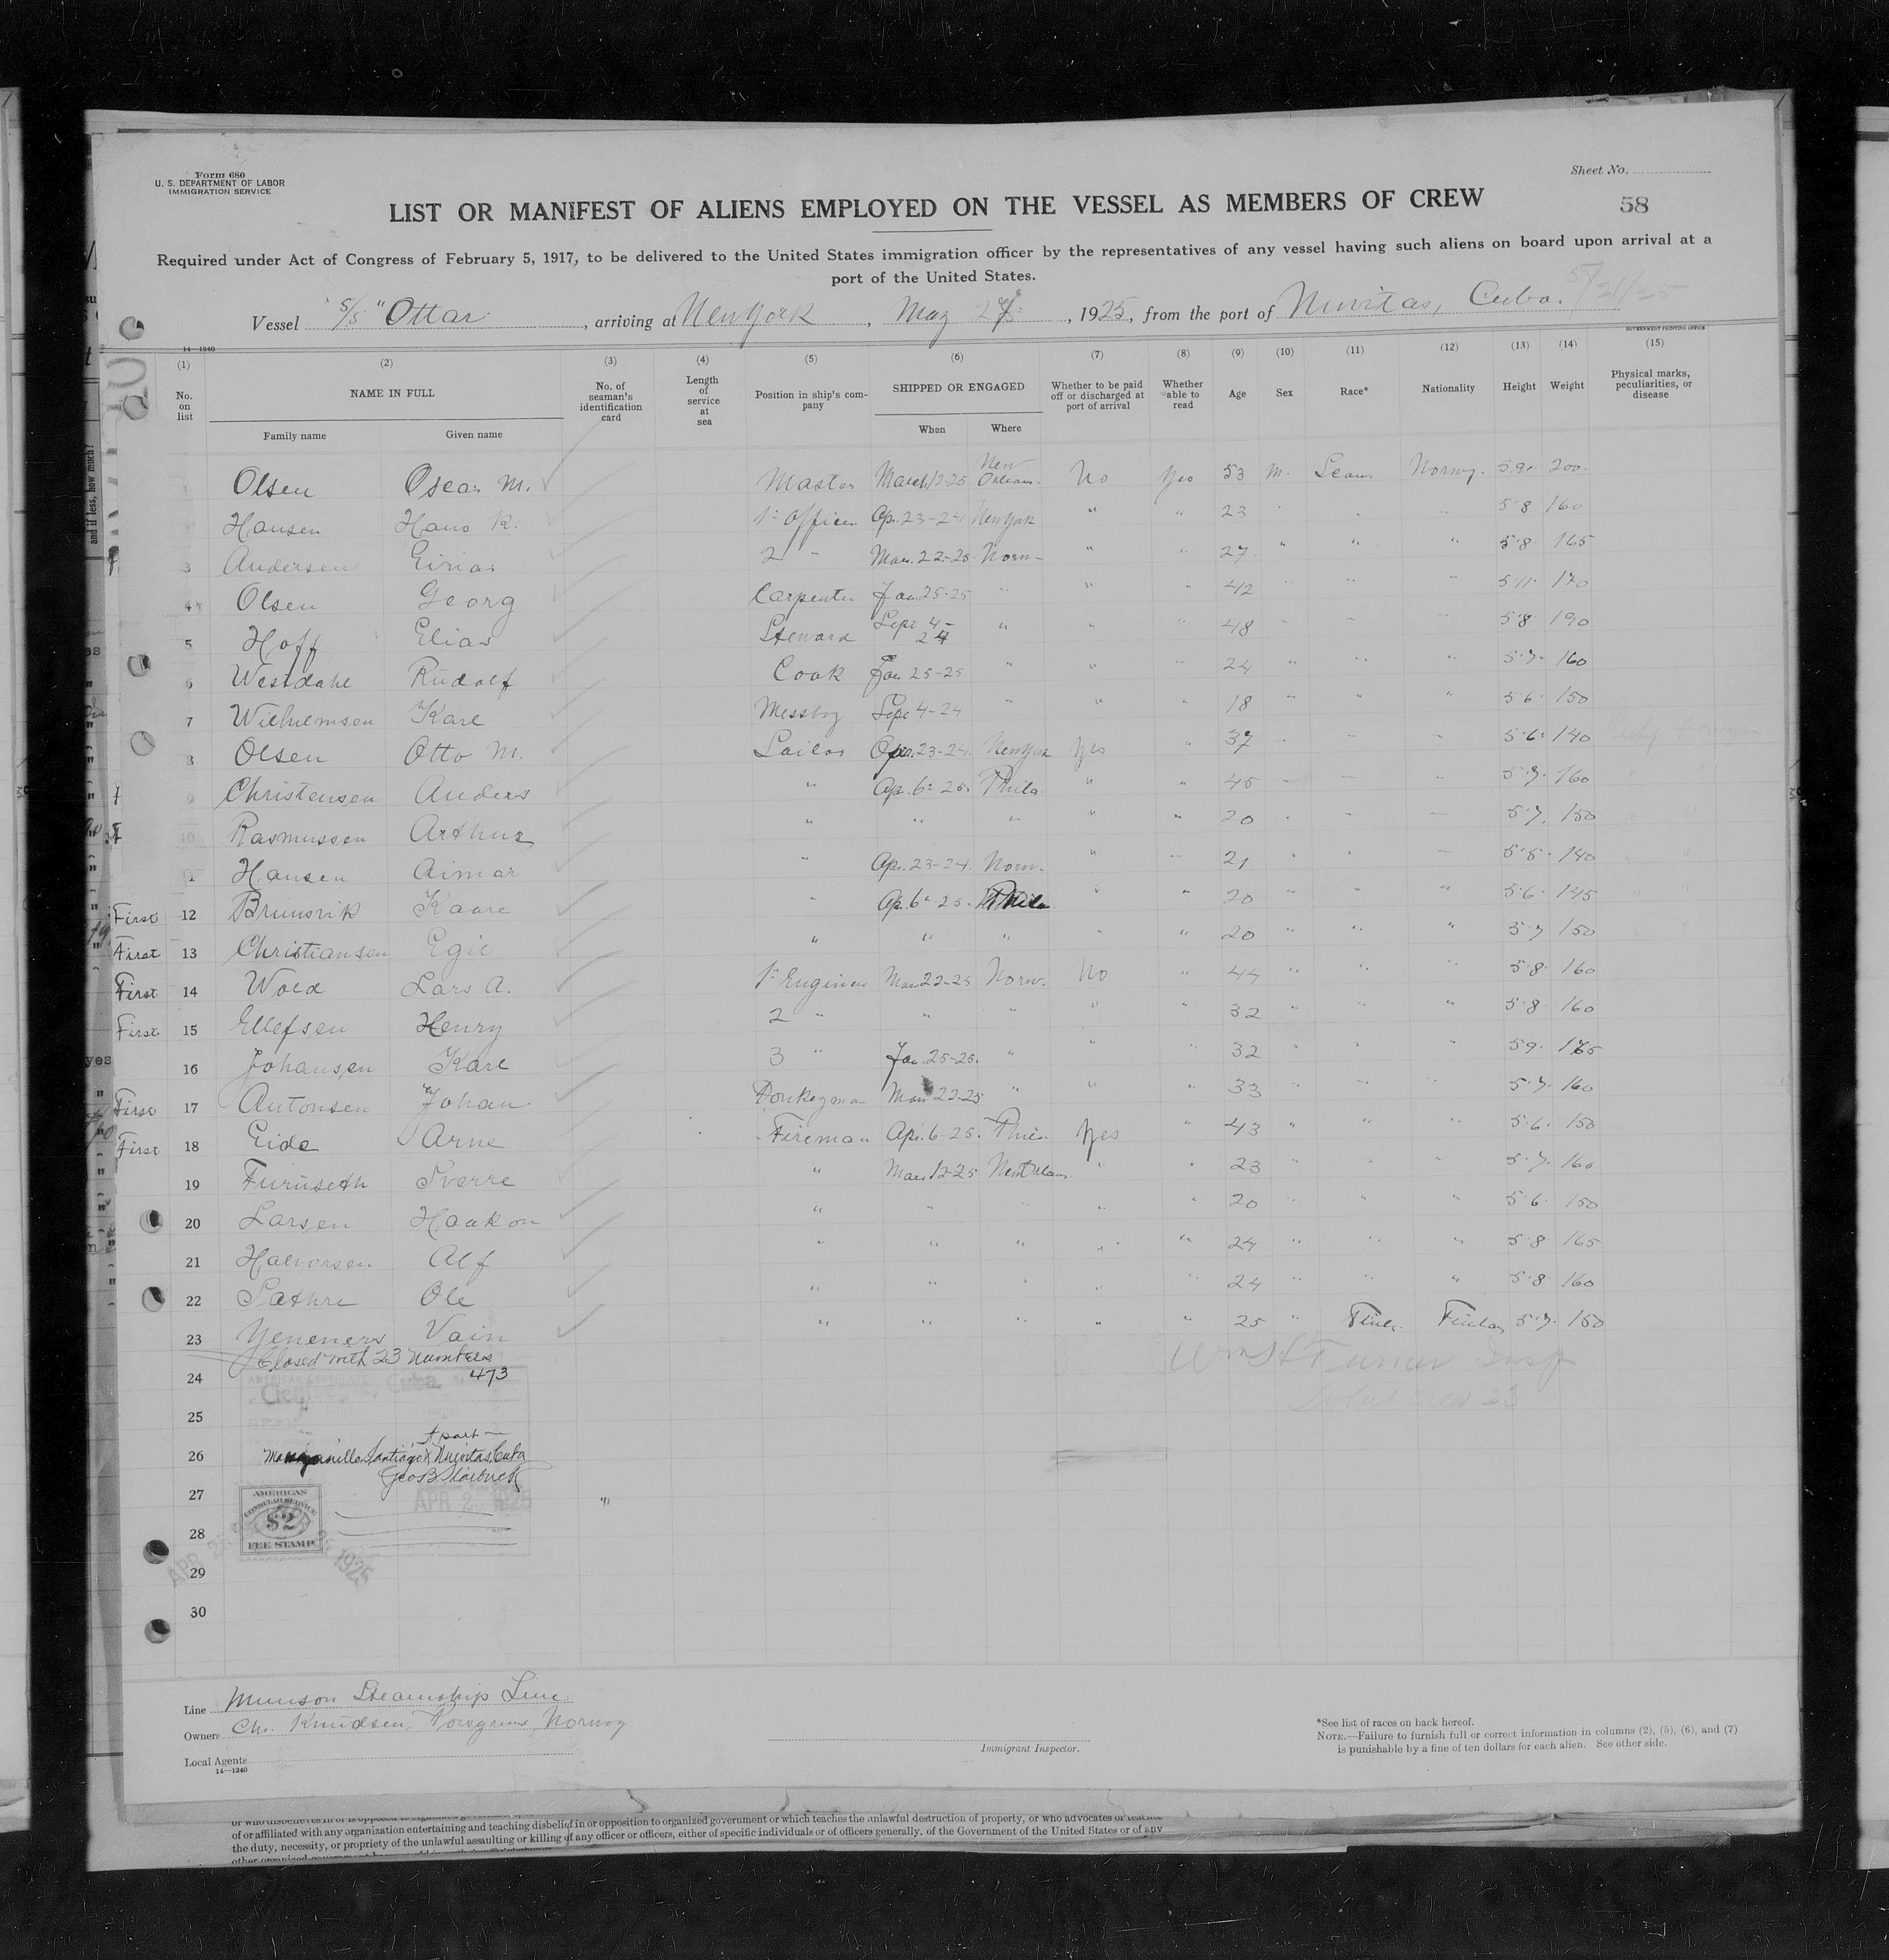 Form 680
U. S. DEPARTMENT OF LABOR
IMMIGRATION SERVICE
Sheet No.
LIST OR MANIFEST OF ALIENS EMPLOYED ON THE VESSEL AS MEMBERS OF CREW
58
Required under Act of Congress of February 5, 1917, to be delivered to the United States immigration officer by the representatives of any vessel having such aliens on board upon arrival at a
port of the United States.
Vessel S/S "Ottar", arriving at New York, May, 1925, from the port of Nuvitas, Cuba.
GOVERNMENT PRINTING OFFICE
14—1240
(1) (2) (3) (4) (5) (6) (7) (8) (9) (10) (11) (12) (13) (14) (15)
No. on list NAME IN FULL No. of seaman's identification card Length of service at sea Position in ship's company SHIPPED OR ENGAGED Whether to be paid off or discharged at port of arrival Whether able to read Age Sex Race* Nationality Height Weight Physical marks, peculiarities, or disease
Family name Given name When Where
Olsen Oscar M. Master March 12-25 New Orleans. No Yes 53 M. Scan. Norwg. 5.9. 200.
Hansen Hans K. 1: Officer Apr. 23-24 New York " " 23 5 8 160
3 Andersen Einar 2 " Mar. 22-25 Norw- " " 27 " " " 5.8. 165
4 Olsen Georg Carpenter Jan. 25-25 " " " 42 " " " 5.11. 170
5 Hoff Elias Steward Sept 4-24 " " " 48 " " " 5.8. 190
6 Westdahl Rudolf Cook Jan. 25-25 " " " 24 " " " 5.7. 160
7 Wilhelmsen Karl Messboy Sept 4-24 " " " 18 " " " 5.6. 150
8 Olsen Otto M. Sailor Apr. 23-24. New York Yes " 37 " " " 5.6. 140
9 Christensen Anders " Ap. 6: 25. Phila. " " 45 " " " 5.7. 160
10 Rasmussen Arthur " " " " " 20 " " " 5.7. 150
Hansen Aimar " Apr. 23-24. Norw. " " 21 " " " 5.5. 140
First 12 Brunsvik Kaare " Ap. 6-25. Phila " " 20 " " " 5.6. 145
First 13 Christiansen Egil " " " " " 20 " " " 5.7 150
First 14 Wold Lars A. 1: Engineer Mar 22-25 Norw. No " 44 " " " 5.8. 160
First 15 Ellefsen Henry 2 " " " " " 32 " " " 5.8 160
16 Johansen Karl 3 " Jan. 25-25. " " " 32 " " " 5 9. 165
First 17 Antonsen Johan Donkeyman Mar 22-25 " " " 33 " " " 5.7. 160
First 18 Eide Arne Fireman Apr. 6-25. Phil. Yes " 43 " " " 5.6. 150
19 Furuseth Sverre " Mar 12-25 New Orleans. " " 23 " " " 5.7. 160
20 Larsen Haakon " " " " " 20 " " " 5.6. 150
21 Halvorsen Alf " " " " " 24 " " " 5.8. 165
22 Sathre Ole " " " " " 24 " " " 5.8. 160
23 Yeneners Vain " " " " " 25 " Finl. Finlan 5.7. 150
Closed with 23 Numbers
Wm H Turner Insp
24 473
AMERICAN CONSULATE
Cuba
25
26
Manzanillo, Santiago & Nuevitas, Cuba
27
APR 25 1925
AMERICAN
CONSULAR SERVICE
$2
FEE STAMP
28
APR 25 1925
29
30
Line Munson Steamship Line
Owners Chr. Knudsen, Porsgrunn, Norway
Local Agents
14—1240
Immigrant Inspector.
*See list of races on back hereof.
NOTE.—Failure to furnish full or correct information in columns (2), (5), (6), and (7)
is punishable by a fine of ten dollars for each alien. See other side.
of or affiliated with any organization entertaining and teaching disbelief in or opposition to organized government or which teaches the unlawful destruction of property, or who advocates or teaches
the duty, necessity, or propriety of the unlawful assaulting or killing of any officer or officers, either of specific individuals or of officers generally, of the Government of the United States or of any